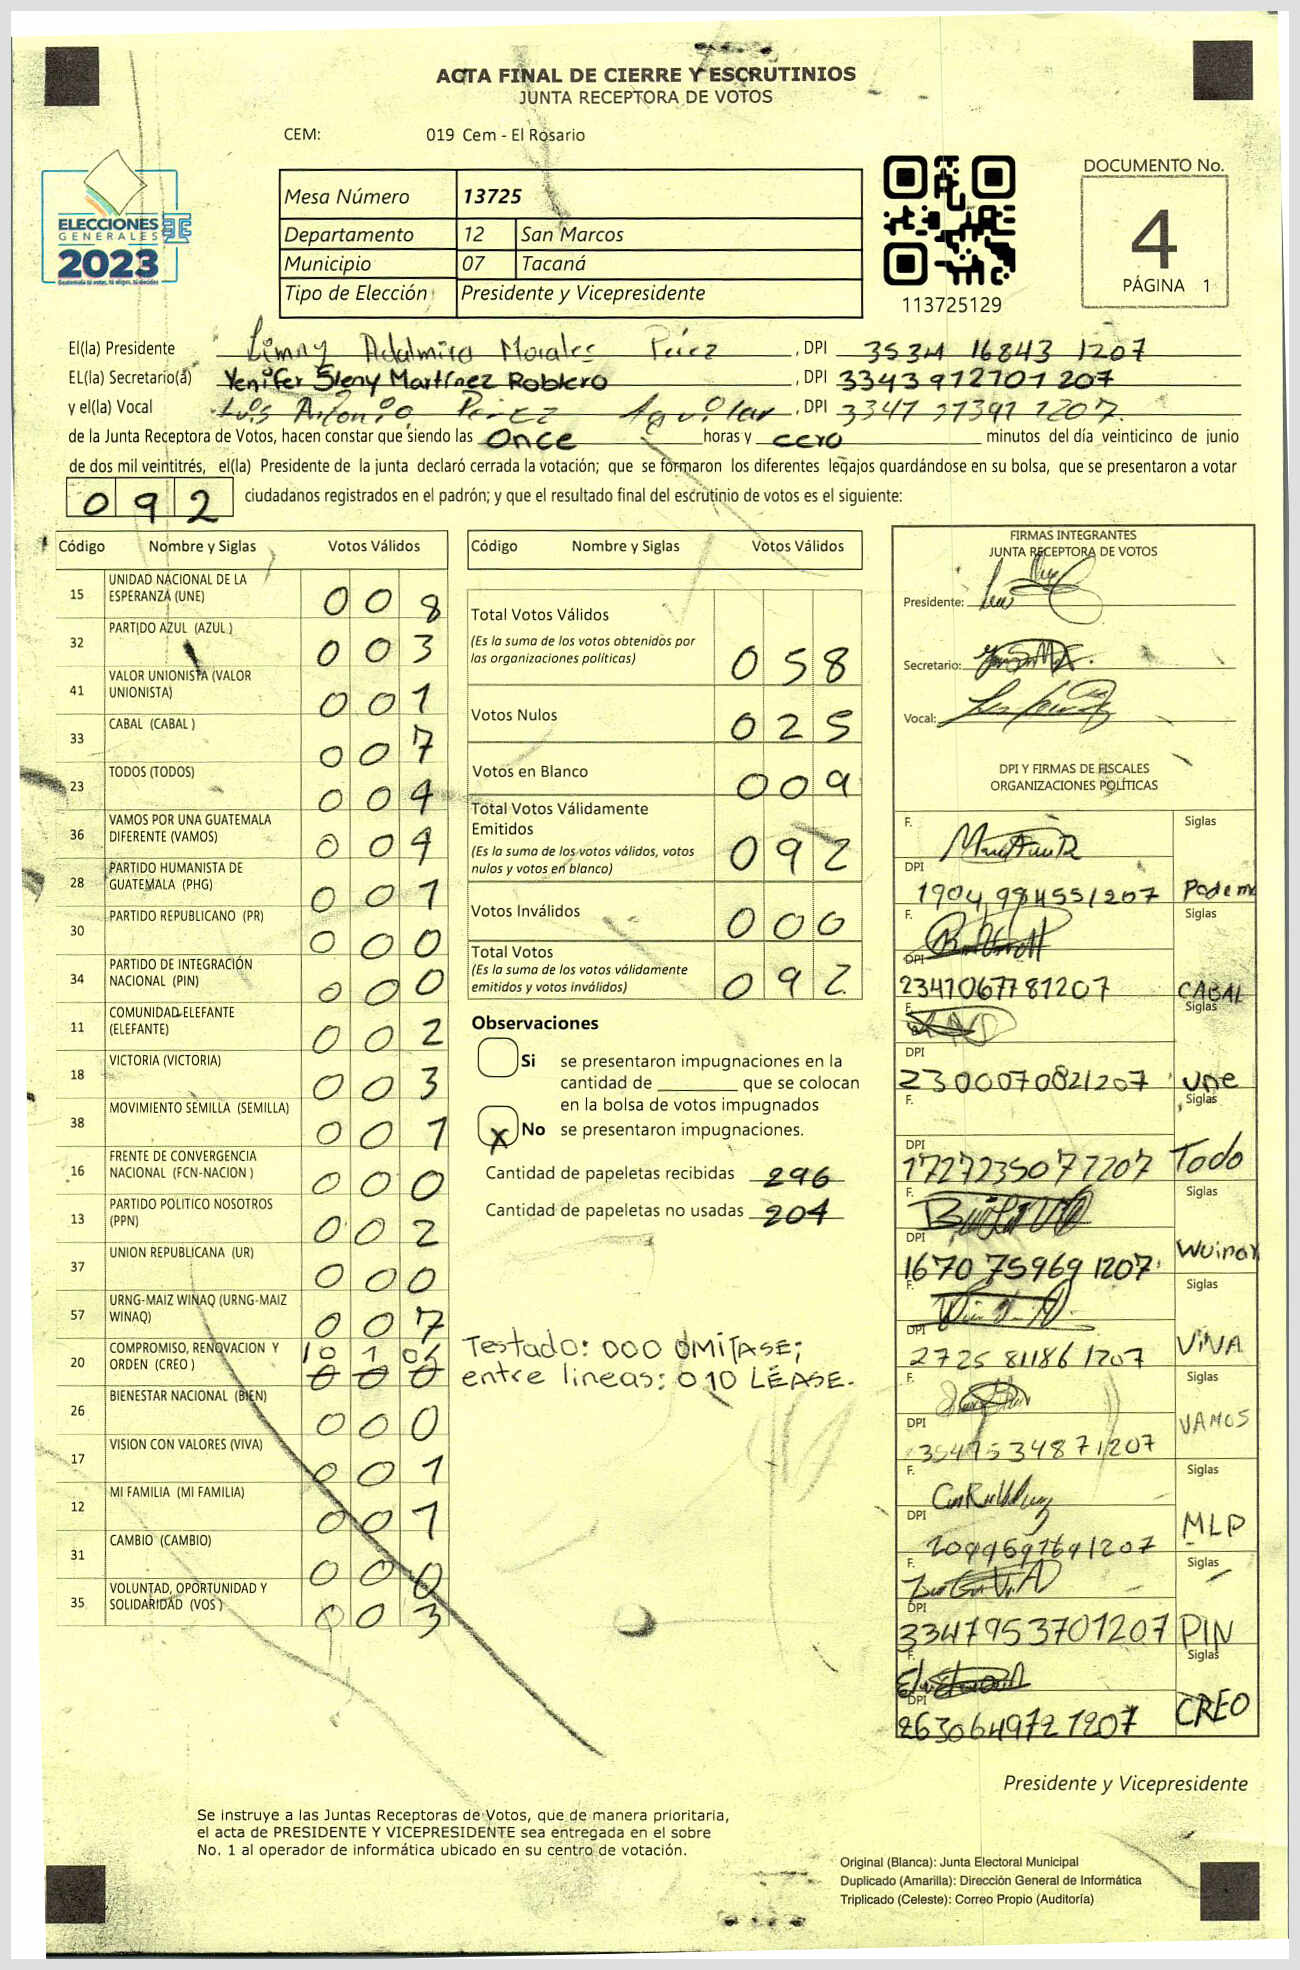 ACTA FINAL DE CIERRE Y ESCRUTINIOS
JUNTA RECEPTORA DE VOTOS
CEM: 019 Cem - El Rosario
DOCUMENTO No.
4
PÁGINA 1
ELECCIONES
GENERALES
2023
Mesa Número 13725
Departamento 12 San Marcos
Municipio 07 Tacaná
Tipo de Elección Presidente y Vicepresidente
113725129
El(la) Presidente Limny Adalmira Morales Pérez, DPI 3534 16843 1207
EL(la) Secretario(a) Yenifer Sleny Martínez Roblero, DPI 3343 91270 1207
y el(la) Vocal Luis Antonio Pérez Aguilar, DPI 3347 1207
de la Junta Receptora de Votos, hacen constar que siendo las Once horas y cero minutos del día veinticinco de junio
de dos mil veintitrés, el(la) Presidente de la junta declaró cerrada la votación; que se formaron los diferentes legajos quardándose en su bolsa, que se presentaron a votar
092 ciudadanos registrados en el padrón; y que el resultado final del escrutinio de votos es el siguiente:
Código Nombre y Siglas Votos Válidos
15 UNIDAD NACIONAL DE LA ESPERANZA (UNE) 008
32 PARTIDO AZUL (AZUL ) 003
41 VALOR UNIONISTA (VALOR UNIONISTA) 001
33 CABAL (CABAL ) 007
23 TODOS (TODOS) 004
36 VAMOS POR UNA GUATEMALA DIFERENTE (VAMOS) 004
28 PARTIDO HUMANISTA DE GUATEMALA (PHG) 001
30 PARTIDO REPUBLICANO (PR) 000
34 PARTIDO DE INTEGRACIÓN NACIONAL (PIN) 000
11 COMUNIDAD ELEFANTE (ELEFANTE) 002
18 VICTORIA (VICTORIA) 003
38 MOVIMIENTO SEMILLA (SEMILLA) 001
16 FRENTE DE CONVERGENCIA NACIONAL (FCN-NACION ) 000
13 PARTIDO POLITICO NOSOTROS (PPN) 002
37 UNION REPUBLICANA (UR) 000
57 URNG-MAIZ WINAQ (URNG-MAIZ WINAQ) 007
20 COMPROMISO, RENOVACION Y ORDEN (CREO ) 000
26 BIENESTAR NACIONAL (BIEN) 000
17 VISION CON VALORES (VIVA) 001
12 MI FAMILIA (MI FAMILIA) 001
31 CAMBIO (CAMBIO) 000
35 VOLUNTAD, OPORTUNIDAD Y SOLIDARIDAD (VOS ) 003
Código Nombre y Siglas Votos Válidos
Total Votos Válidos
(Es la suma de los votos obtenidos por las organizaciones políticas) 058
Votos Nulos 025
Votos en Blanco 009
Total Votos Válidamente Emitidos
(Es la suma de los votos válidos, votos nulos y votos en blanco) 092
Votos Inválidos 000
Total Votos
(Es la suma de los votos válidamente emitidos y votos inválidos) 092
Observaciones
Si se presentaron impugnaciones en la
cantidad de ________ que se colocan
en la bolsa de votos impugnados
X No se presentaron impugnaciones.
Cantidad de papeletas recibidas 296
Cantidad de papeletas no usadas 204
Testado: 000 OMITASE;
entre lineas: 010 LÉASE.
FIRMAS INTEGRANTES
JUNTA RECEPTORA DE VOTOS
Presidente:
Secretario:
Vocal:
DPI Y FIRMAS DE FISCALES
ORGANIZACIONES POLÍTICAS
F. Siglas
DPI 1904 98455 1207 Podemo
F. Siglas
DPI 2341067781207 CABAL
F. Siglas
DPI 2300070821207 Une
F. Siglas
DPI 1727235071207 Todo
F. Siglas
DPI 1670 75969 1207 Wuinaq
F. Siglas
DPI 2725 81186 1207 VIVA
F. Siglas
DPI 3547534871207 VAMOS
F. Siglas
DPI MLP
F. Siglas
DPI 3347953701207 PIN
F. Siglas
DPI 2630649721207 CREO
Presidente y Vicepresidente
Se instruye a las Juntas Receptoras de Votos, que de manera prioritaria,
el acta de PRESIDENTE Y VICEPRESIDENTE sea entregada en el sobre
No. 1 al operador de informática ubicado en su centro de votación.
Original (Blanca): Junta Electoral Municipal
Duplicado (Amarilla): Dirección General de Informática
Triplicado (Celeste): Correo Propio (Auditoría)